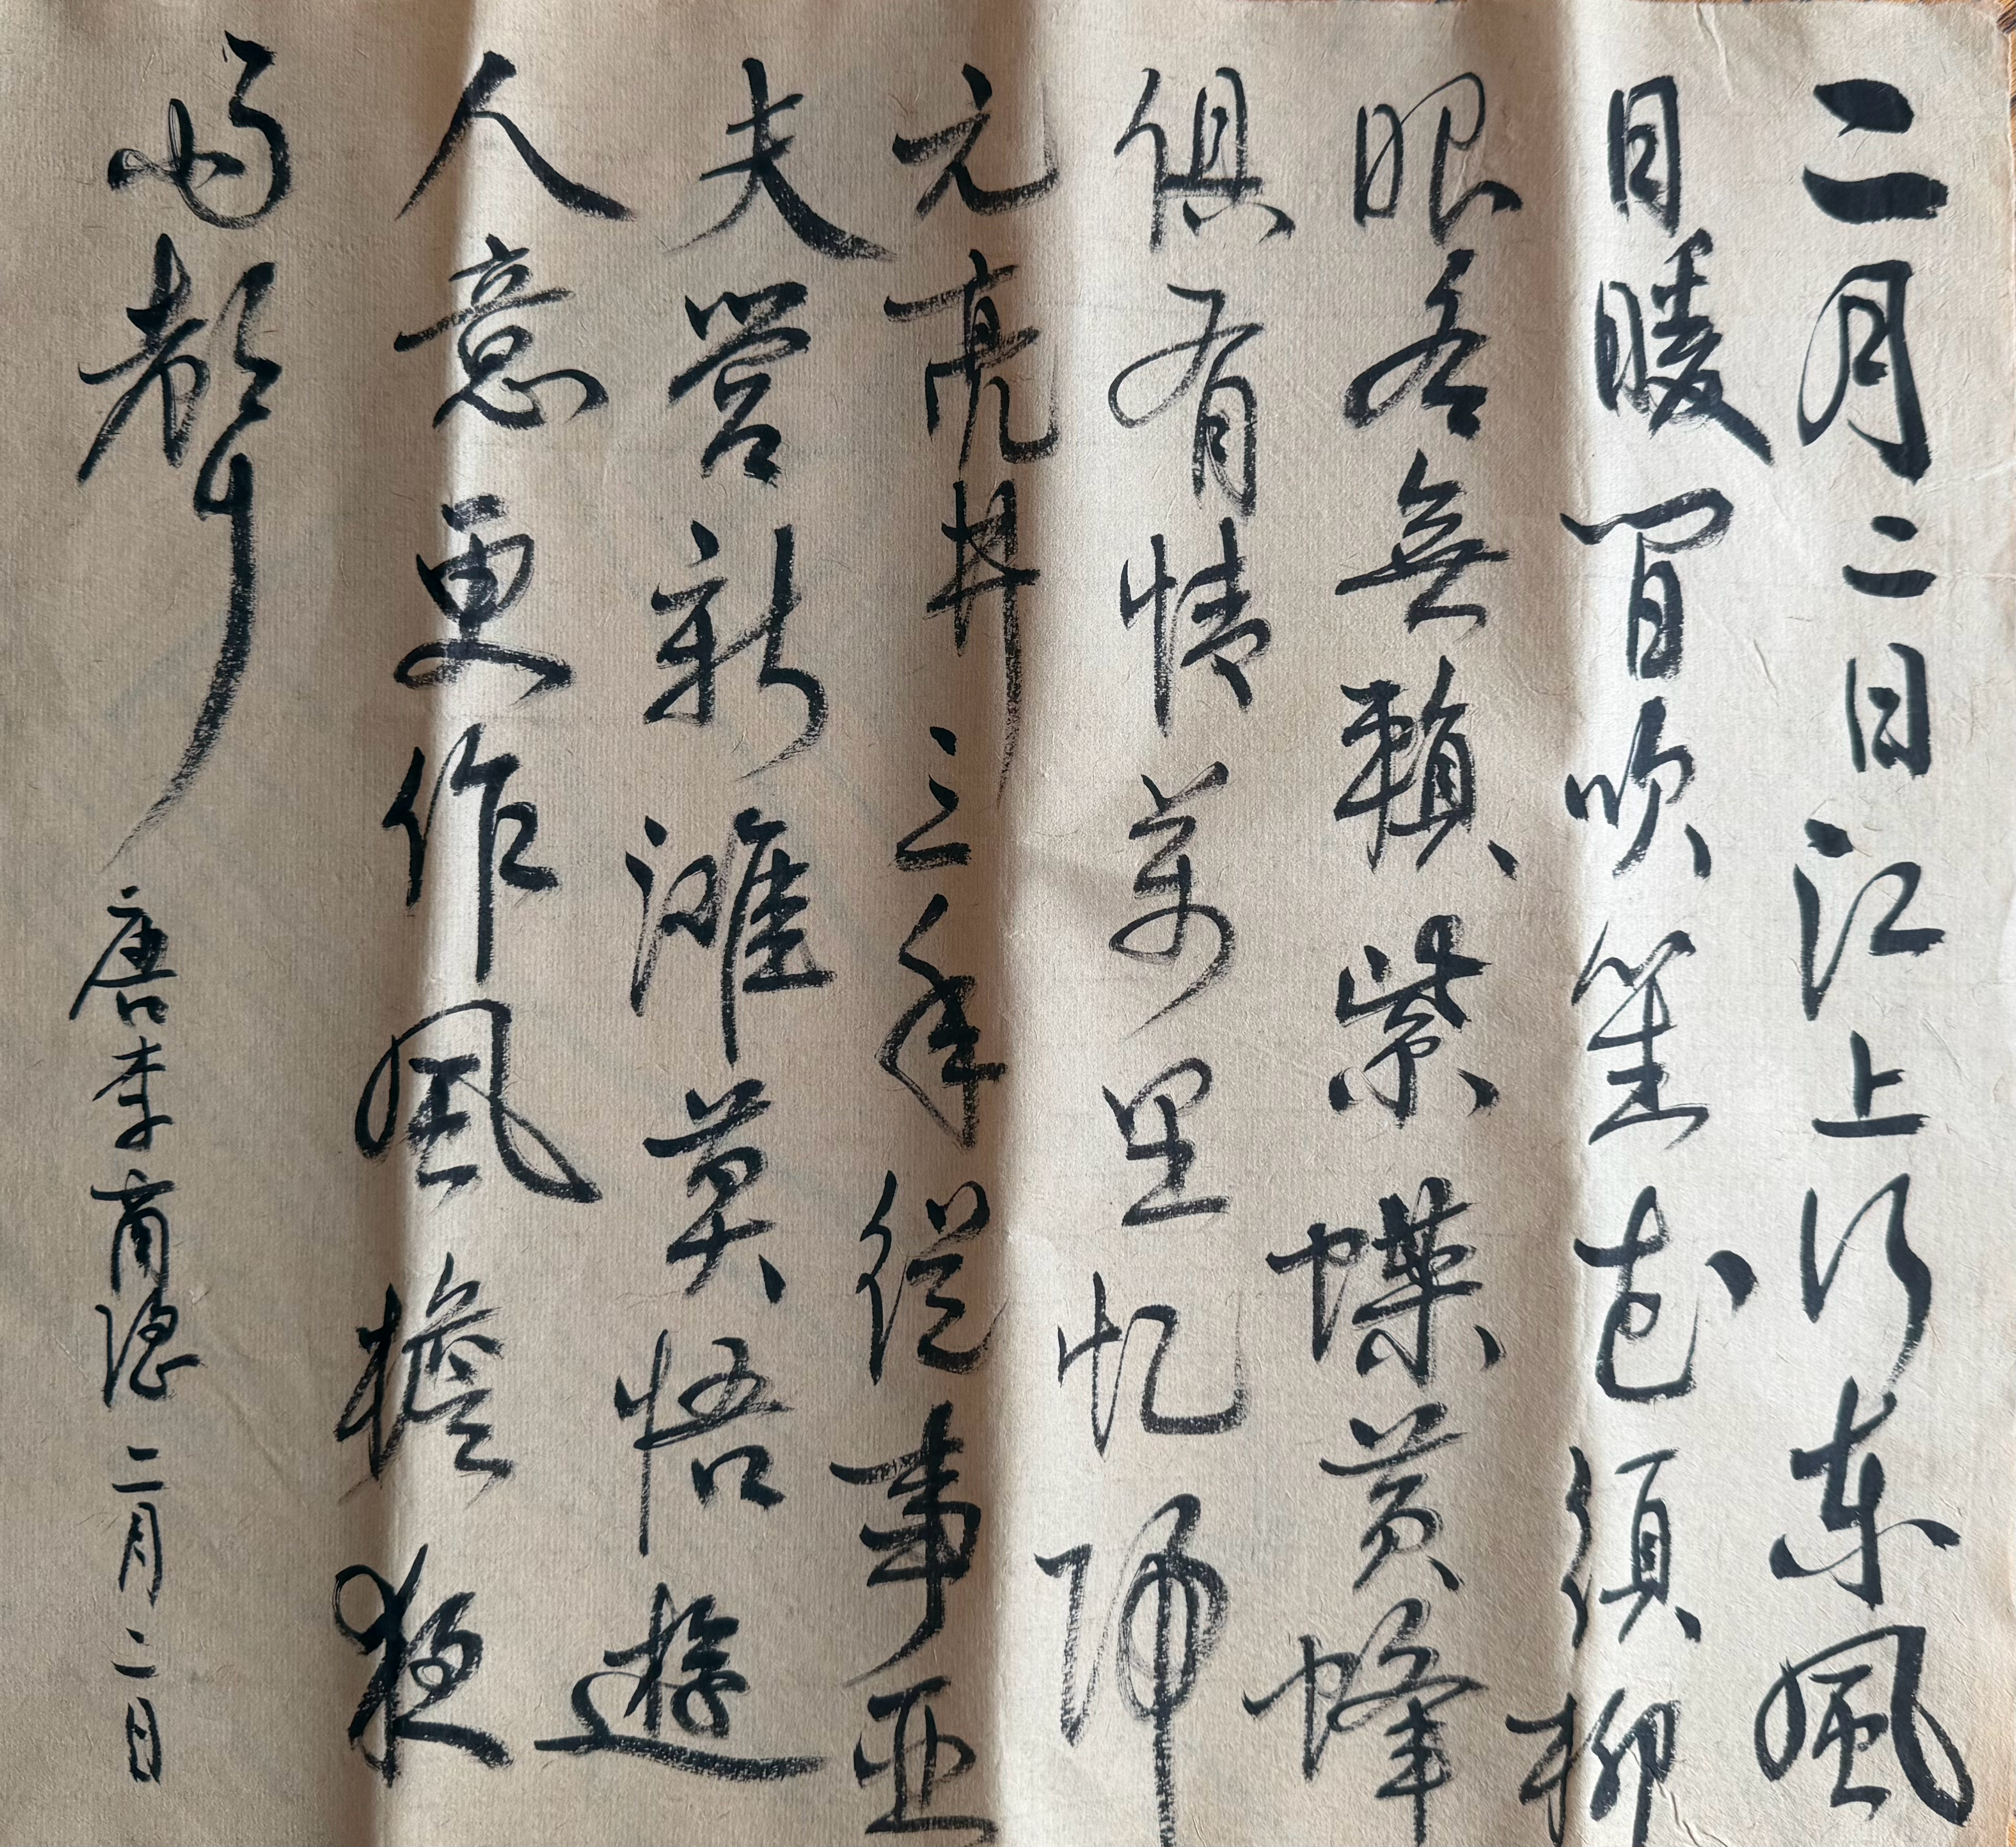 二月二日江上行東風
日暖聞吹笙花須柳
眼各無賴紫蝶黄蜂
俱有情萬里忆歸
元亮井三年從事亞
夫營新滩莫悟遊
人意更作風檐夜
雨聲 唐李商隱 二月二日